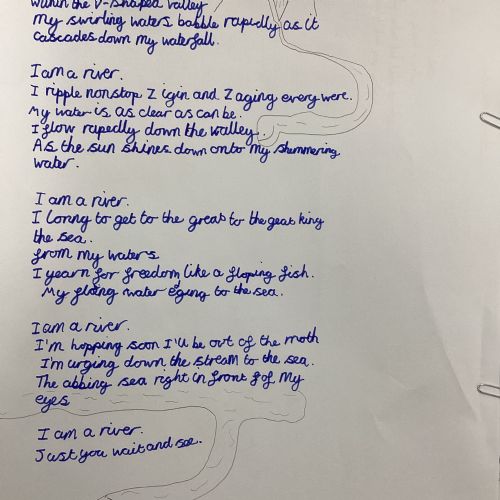 within the V-shaped valley
My swirling waters babble rapedly as it
cascades down my waterfall.
I am a river.
I ripple nonstop Z igin and Z aging every were.
My water is as clear as can be.
I flow rapedly down the valley.
As the sun shines down onto my shimmering
water.
I am a river.
I lonng to get to the great to the geat king
the sea.
from my waters
I yearn for freedom like a floping fish.
My floing water eging to the sea.
I am a river.
I'm hopping soon I'll be out of the moth
I'm urging down the stream to the sea.
The abbing sea right in front fof My
eyes
I am a river.
Just you wait and see.